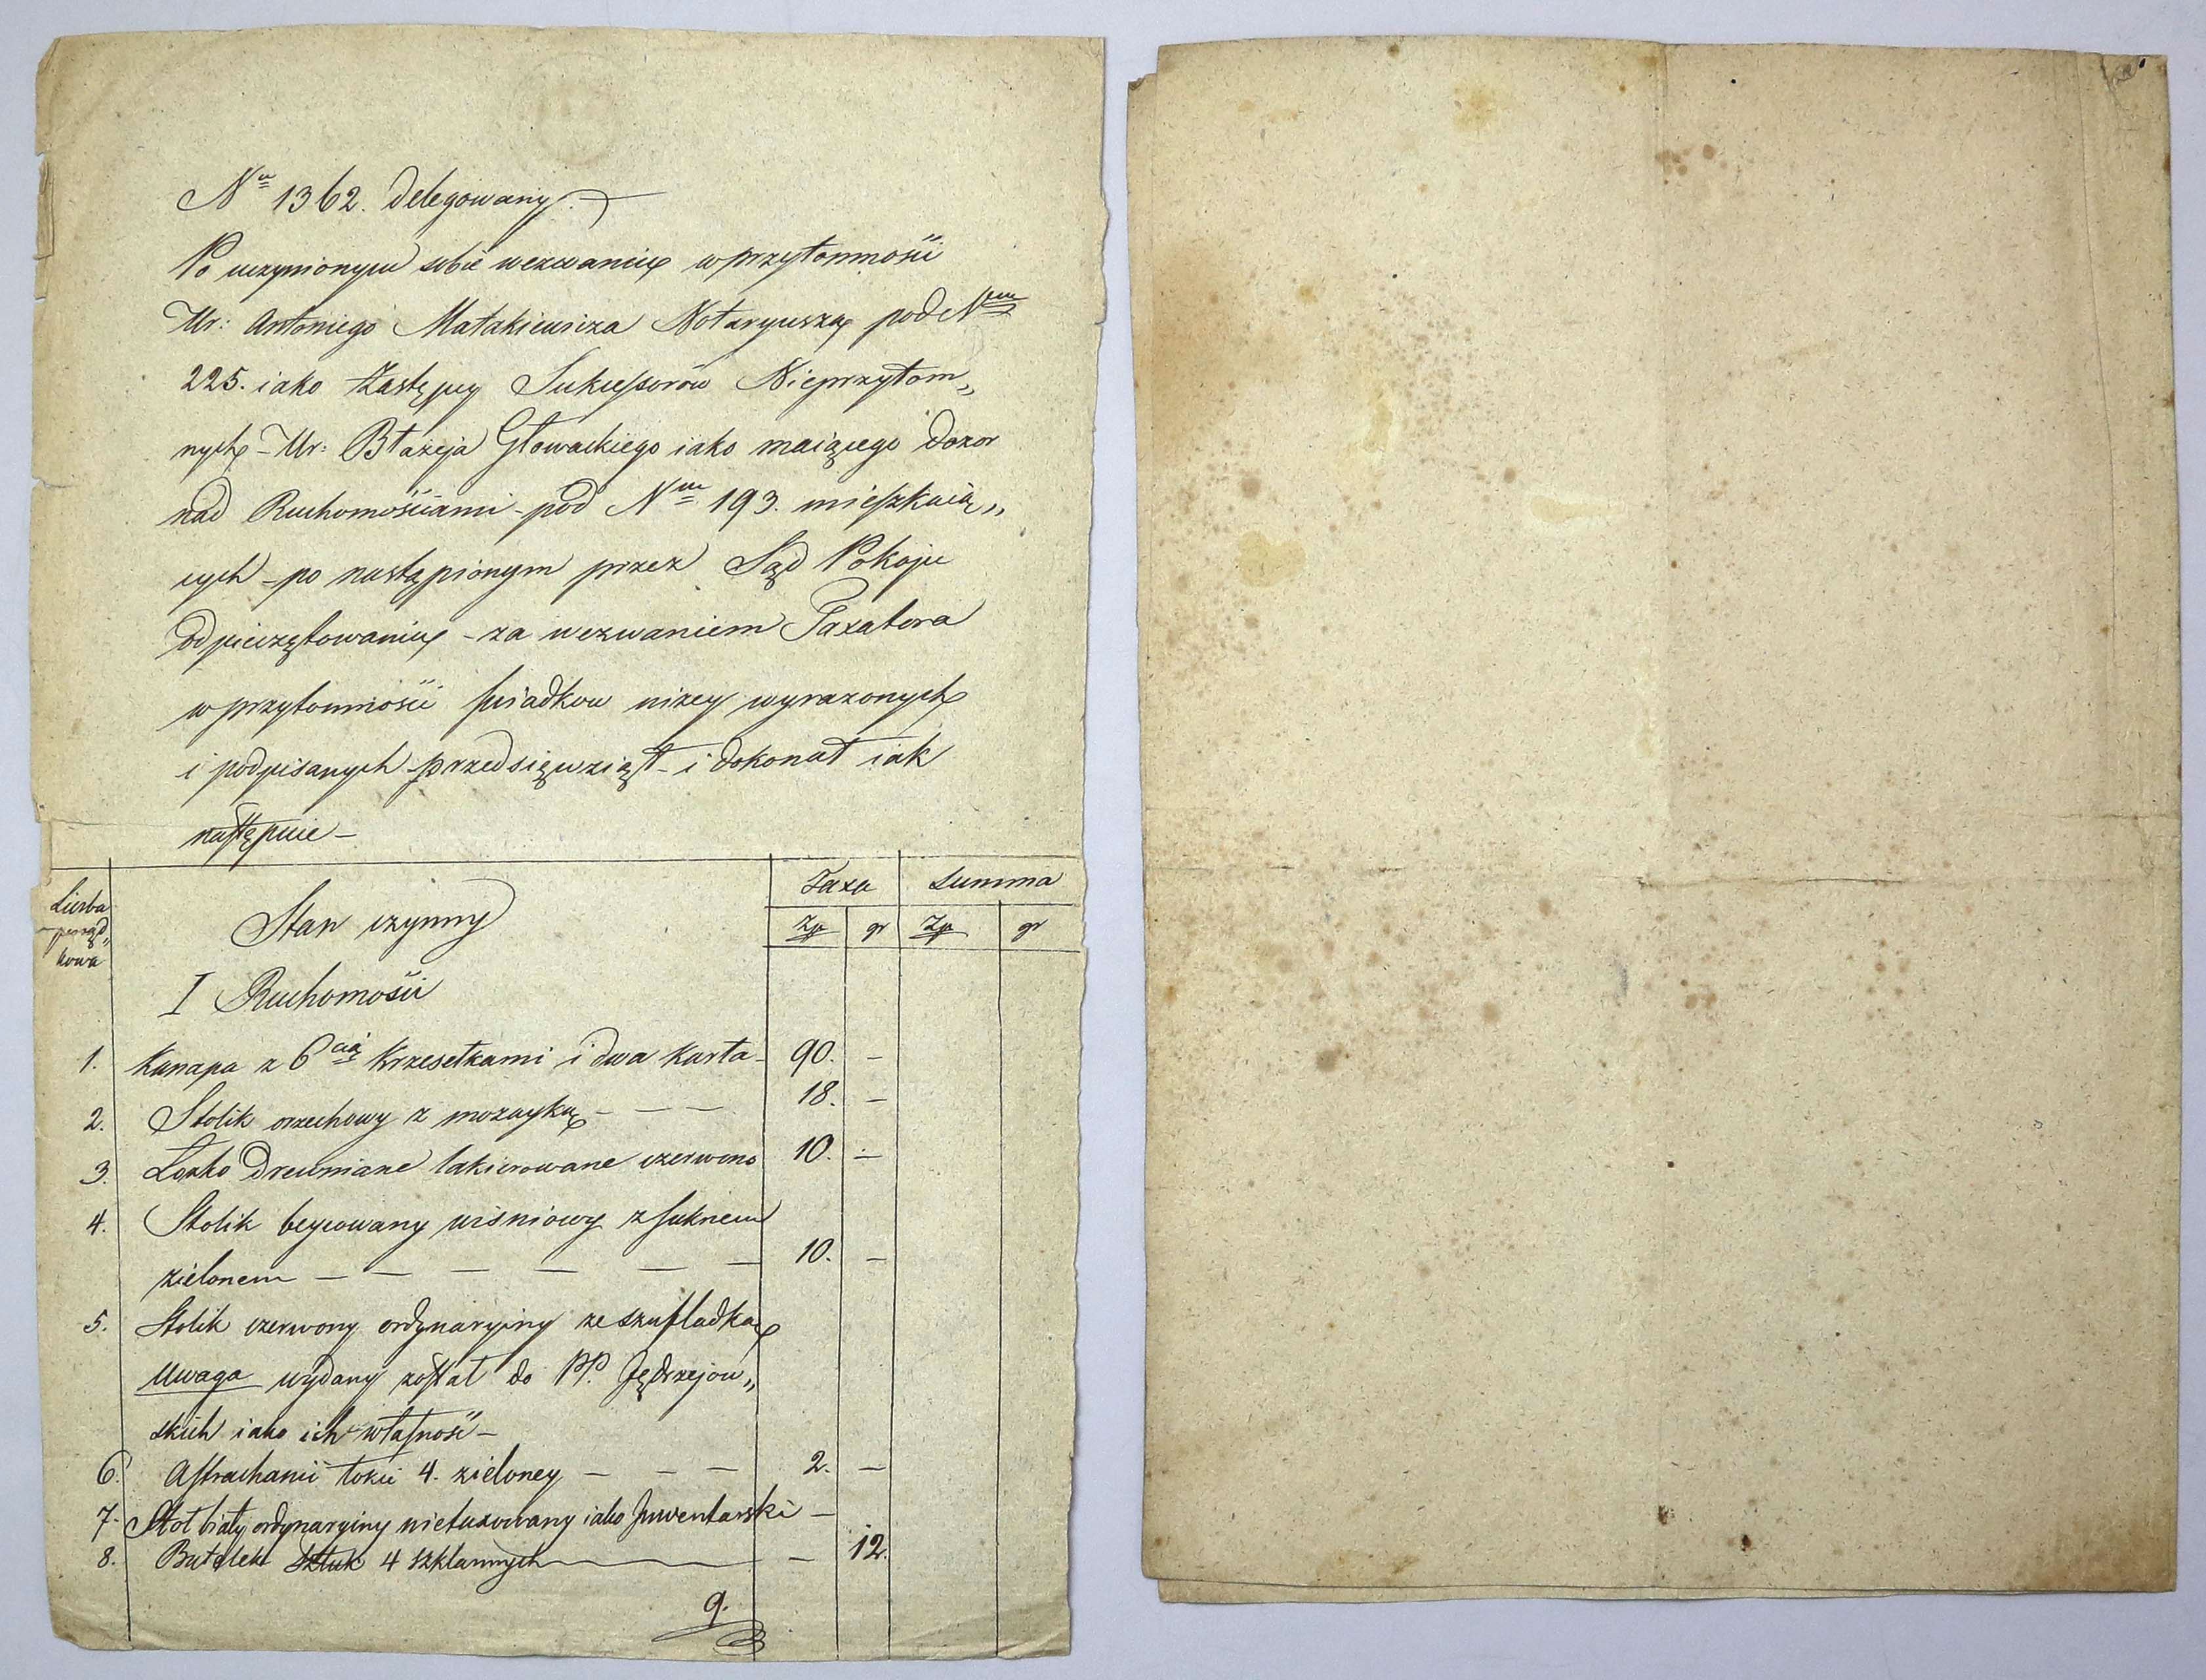 Nrᵘ 1362. delegowany.
Po uczynionym sobie wezwaniu w przytomności
Ur: Antoniego Matakiewicza Notaryusza pod Nrem
225. iako Zastępcy Sukcessorów Nieprzytom„
nych – Ur: Błażeja Głowackiego iako maiącego dozor
nad Ruchomościami – pod Nrem 193. mieszkaią„
cych – po nastąpionym przez Sąd Pokoju
odpieczętowaniu – za wezwaniem Taxatora
w przytomności świadkow niżey wyrażonych
i podpisanych przedsięwziął – i dokonał iak
następuie –
Liczba porząd„ kowa
Stan czynny
Taxa Summa
Zp gr Zp gr
I Ruchomości
1. Kanapa z 6cią Krzesełkami i dwa Karła – 90. –
2. Stolik orzechowy z mozayką – – – 18. –
3. Łożko drewniane lakierowane czerwono 10. –
4. Stolik beycowany wiśniowy z suknem
zielonem – – – – – – 10. –
5. Stolik czerwony ordynaryiny ze szufladką
Uwaga wydany został do PP. Jędrzejow„
skich iako ich własność –
6. Astrachanii łokci 4. zieloney – – – 2. –
7. Stoł biały ordynaryiny nietaxowany iako Inwentarski –
8. Butelek sztuk 4 szklannych – 12.
9.